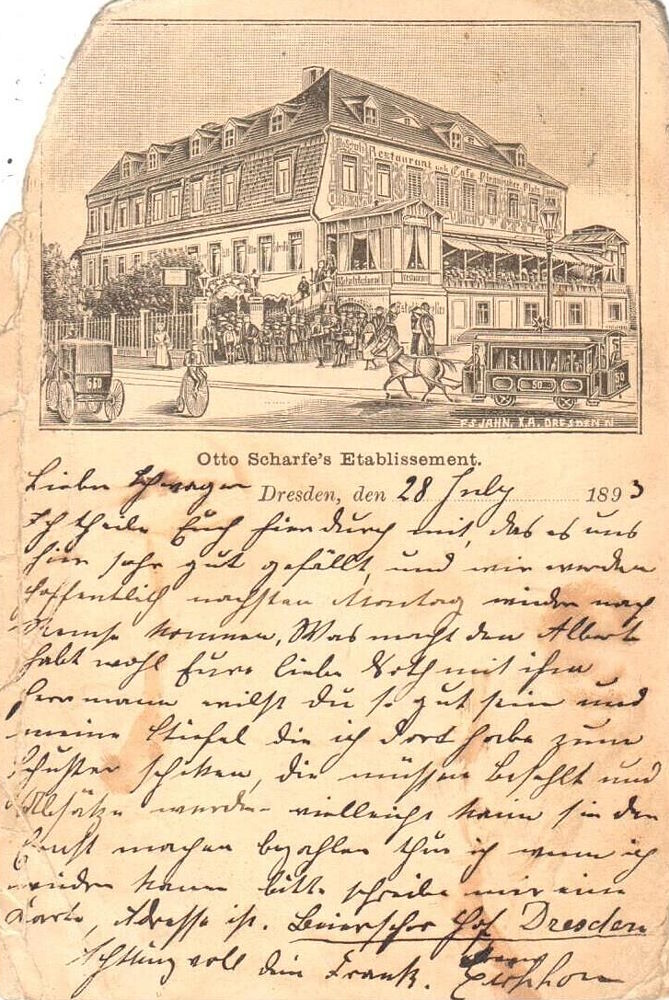 Restaurant und Café Pirnaischer Platz
Restaurant
660
50
50
F.S. JAHN. X.A. DRESDEN N
Otto Scharfe's Etablissement.
Lieber Schwager
Dresden, den 28 July 1893
Ich theile Euch hierdurch mit, das es uns
hier sehr gut gefällt, und wir werden
hoffentlich nachsten Montag wieder nach
kommen, Was macht den Albert
habt wohl Eure liebe Noth mit ihm
Herrmann willst du so gut sein und
meine Stiefel die ich dort habe zum
Schuster schiken, die müssen besohlt und
Absätze werden vielleicht kann sie der
Ernst machen bezahlen thue ich wenn ich
wieder komm bitte schreibe mir eine
Karte, Adresse ist. Beierscher Hof Dresden
Achtungsvoll dein Frank. Eichhorn